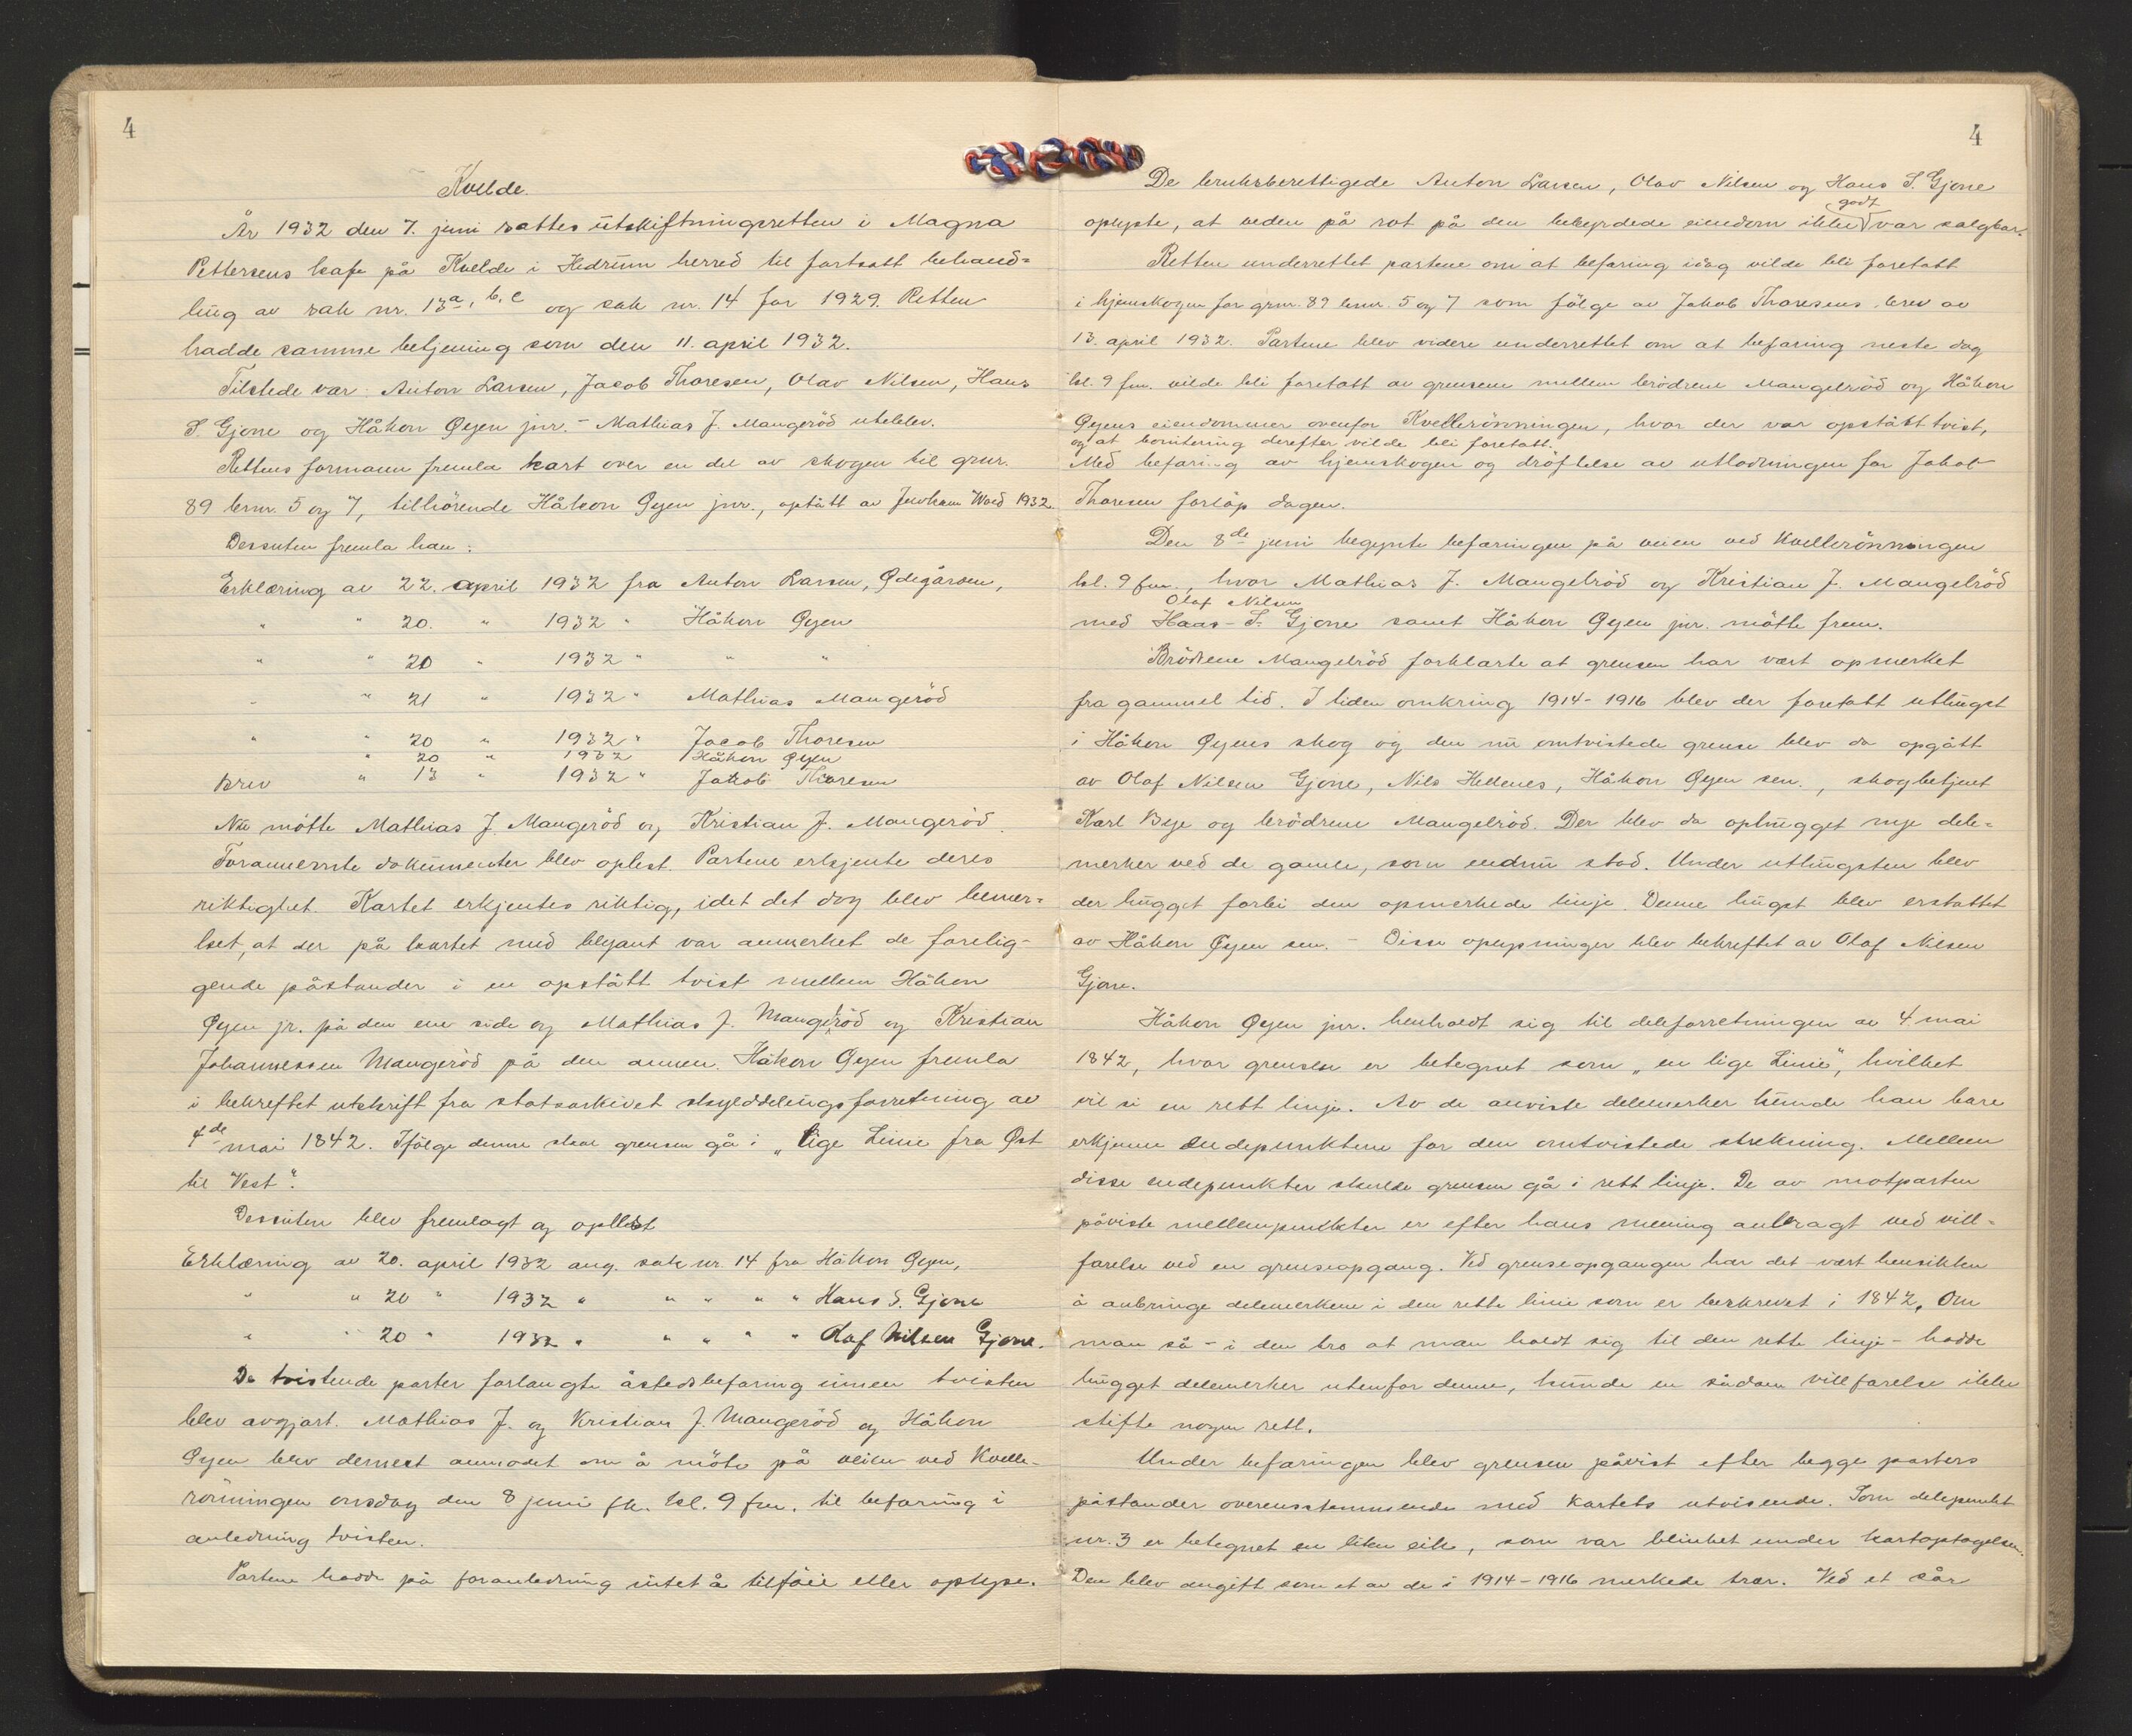 4
Kvelde.
År 1932 den 7. juni sattes utskiftningsretten i Magna
Pettersens kafe på Kvelde i Hedrum herred til fortsatt behand=
ling av sak nr. 13a, b, c og sak nr. 14 for 1929. Retten
hadde samme betjening som den 11. april 1932.
Tilstede var: Anton Larsen, Jacob Thoresen, Olav Nilsen, Hans
S. Gjone og Håkon Øyen jnr. - Mathias J. Mangeröd uteblev.
Rettens formann fremla kart over en del av skogen til grnr.
89 brnr. 5 og 7, tilhörende Håkon Øyen jnr., optatt av Jens Wold 1932.
Dessuten fremla han:
Erklæring av 22. april 1932 fra Anton Larsen, Ødegården,
" " 20. " 1932 " Håkon Øyen
" " 20 " 1932 " " "
" " 21 " 1932 " Mathias Mangeröd
" " 20 " 1932 " Jacob Thoresen
" 20 1932 Håkon Øyen
Brev " 13 " 1932 " Jakob Thoresen
Nu mötte Mathias J. Mangeröd og Kristian J. Mangeröd.
Forannevnte dokumenter blev oplest. Partene erkjente deres
riktighet. Kartet erkjentes riktig, idet det dog blev bemer=
ket, at der på kartet med blyant var anmerket de forelig-
gende påstander i en opstått tvist mellem Håkon
Øyen jr. på den ene side og Mathias J. Mangelröd og Kristian
Johannessen Mangeröd på den annen. Håkon Øyen fremla
i bekreftet utskrift fra statsarkivet skylddelingsforretning av
4de mai 1842. Ifölge denne skal grensen gå i „lige Linie fra Øst
til Vest".
Dessuten blev fremlagt og oplest
Erklæring av 20. april 1932 ang. sak nr. 14 fra Håkon Øyen,
" " 20 " 1932 " " " " " Hans S. Gjone
" " 20 " 1932 " " " " " Olaf Nilsen Gjone.
De tvistende parter forlangte åstedsbefaring innen tvisten
blev avgjort. Mathias J. og Kristian J. Mangeröd og Håkon
Øyen blev dernest anmodet om å möte på veien ved Kvelle-
rönningen onsdag den 8 juni fk. kl. 9 fm. til befaring i
anledning tvisten.
Partene hadde på foranledning intet å tilföie eller oplyse.
4
De bruksberettigede Anton Larsen, Olav Nilsen og Hans S. Gjone
godt
oplyste, at veden på rot på den bebyrdede eiendom ikke var salgbar.
Retten underrettet partene om at befaring idag vilde bli foretatt
i hjemskogen for grnr. 89 brnr. 5 og 7 som fölge av Jakob Thoresens brev av
13. april 1932. Partene blev videre underrettet om at befaring neste dag
kl. 9 fm. vilde bli foretatt av grensene mellem brödrene Mangelröd og Håkon
Øyens eiendommer ovenfor Kvellerönningen, hvor der var opstått tvist,
og at bonitering derefter vilde bli foretatt.
Med befaring av hjemskogen og dröftelse av utlodningen for Jakob
Thoresen forlöp dagen.
Den 8de juni begynte befaringen på veien ved Kvellerönningen
kl. 9 fm., hvor Mathias J. Mangelröd og Kristian J. Mangelröd
Olaf Nilsen
med Haas S. Gjone samt Håkon Øyen jnr. mötte frem.
Brödrene Mangelröd forklarte at grensen har vært opmerket
fra gammel tid. I tiden omkring 1914-1916 blev der foretatt uthugst
i Håkon Øyens skog og den nu omtvistede grense blev da opgått
av Olaf Nilsen Gjone, Nils Hellenes, Håkon Øyen sen., skogbetjent
Karl Bye og brödrene Mangelröd. Der blev da ophugget nye dele=
merker ved de gamle, som endnu stod. Under uthugsten blev
der hugget forbi den opmerkede linje. Denne hugst blev erstattet
av Håkon Øyen sen. - Disse oplysninger blev bekreftet av Olaf Nilsen
Gjone.
Håkon Øyen jnr. henholdt sig til deleforretningen av 4. mai
1842, hvor grensen er betegnet som „en lige Linie", hvilket
vil si en rett linje. Av de anviste delemerker kunde han bare
erkjenne endepunktene for den omtvistede strekning. Mellem
disse endepunkter skulde grensen gå i rett linje. De av motparten
påviste mellempunkter er efter hans mening anbragt ved vill-
farelse ved en grenseopgang. Ved grenseopgangen har det vært hensikten
å anbringe delemerkene i den rette linie som er beskrevet i 1842. Om
man så - i den tro at man holdt sig til den rette linje - hadde
hugget delemerker utenfor denne, kunde en sådan villfarelse ikke
stifte nogen rett.
Under befaringen blev grensen påvist efter begge parters
påstander overensstemmende med kartets utvisende. Som delepunkt
nr. 3 er betegnet en liten eik, som var blinket under kartoptagelsen.
Den blev angitt som et av de i 1914-1916 merkede trær. Ved et sår